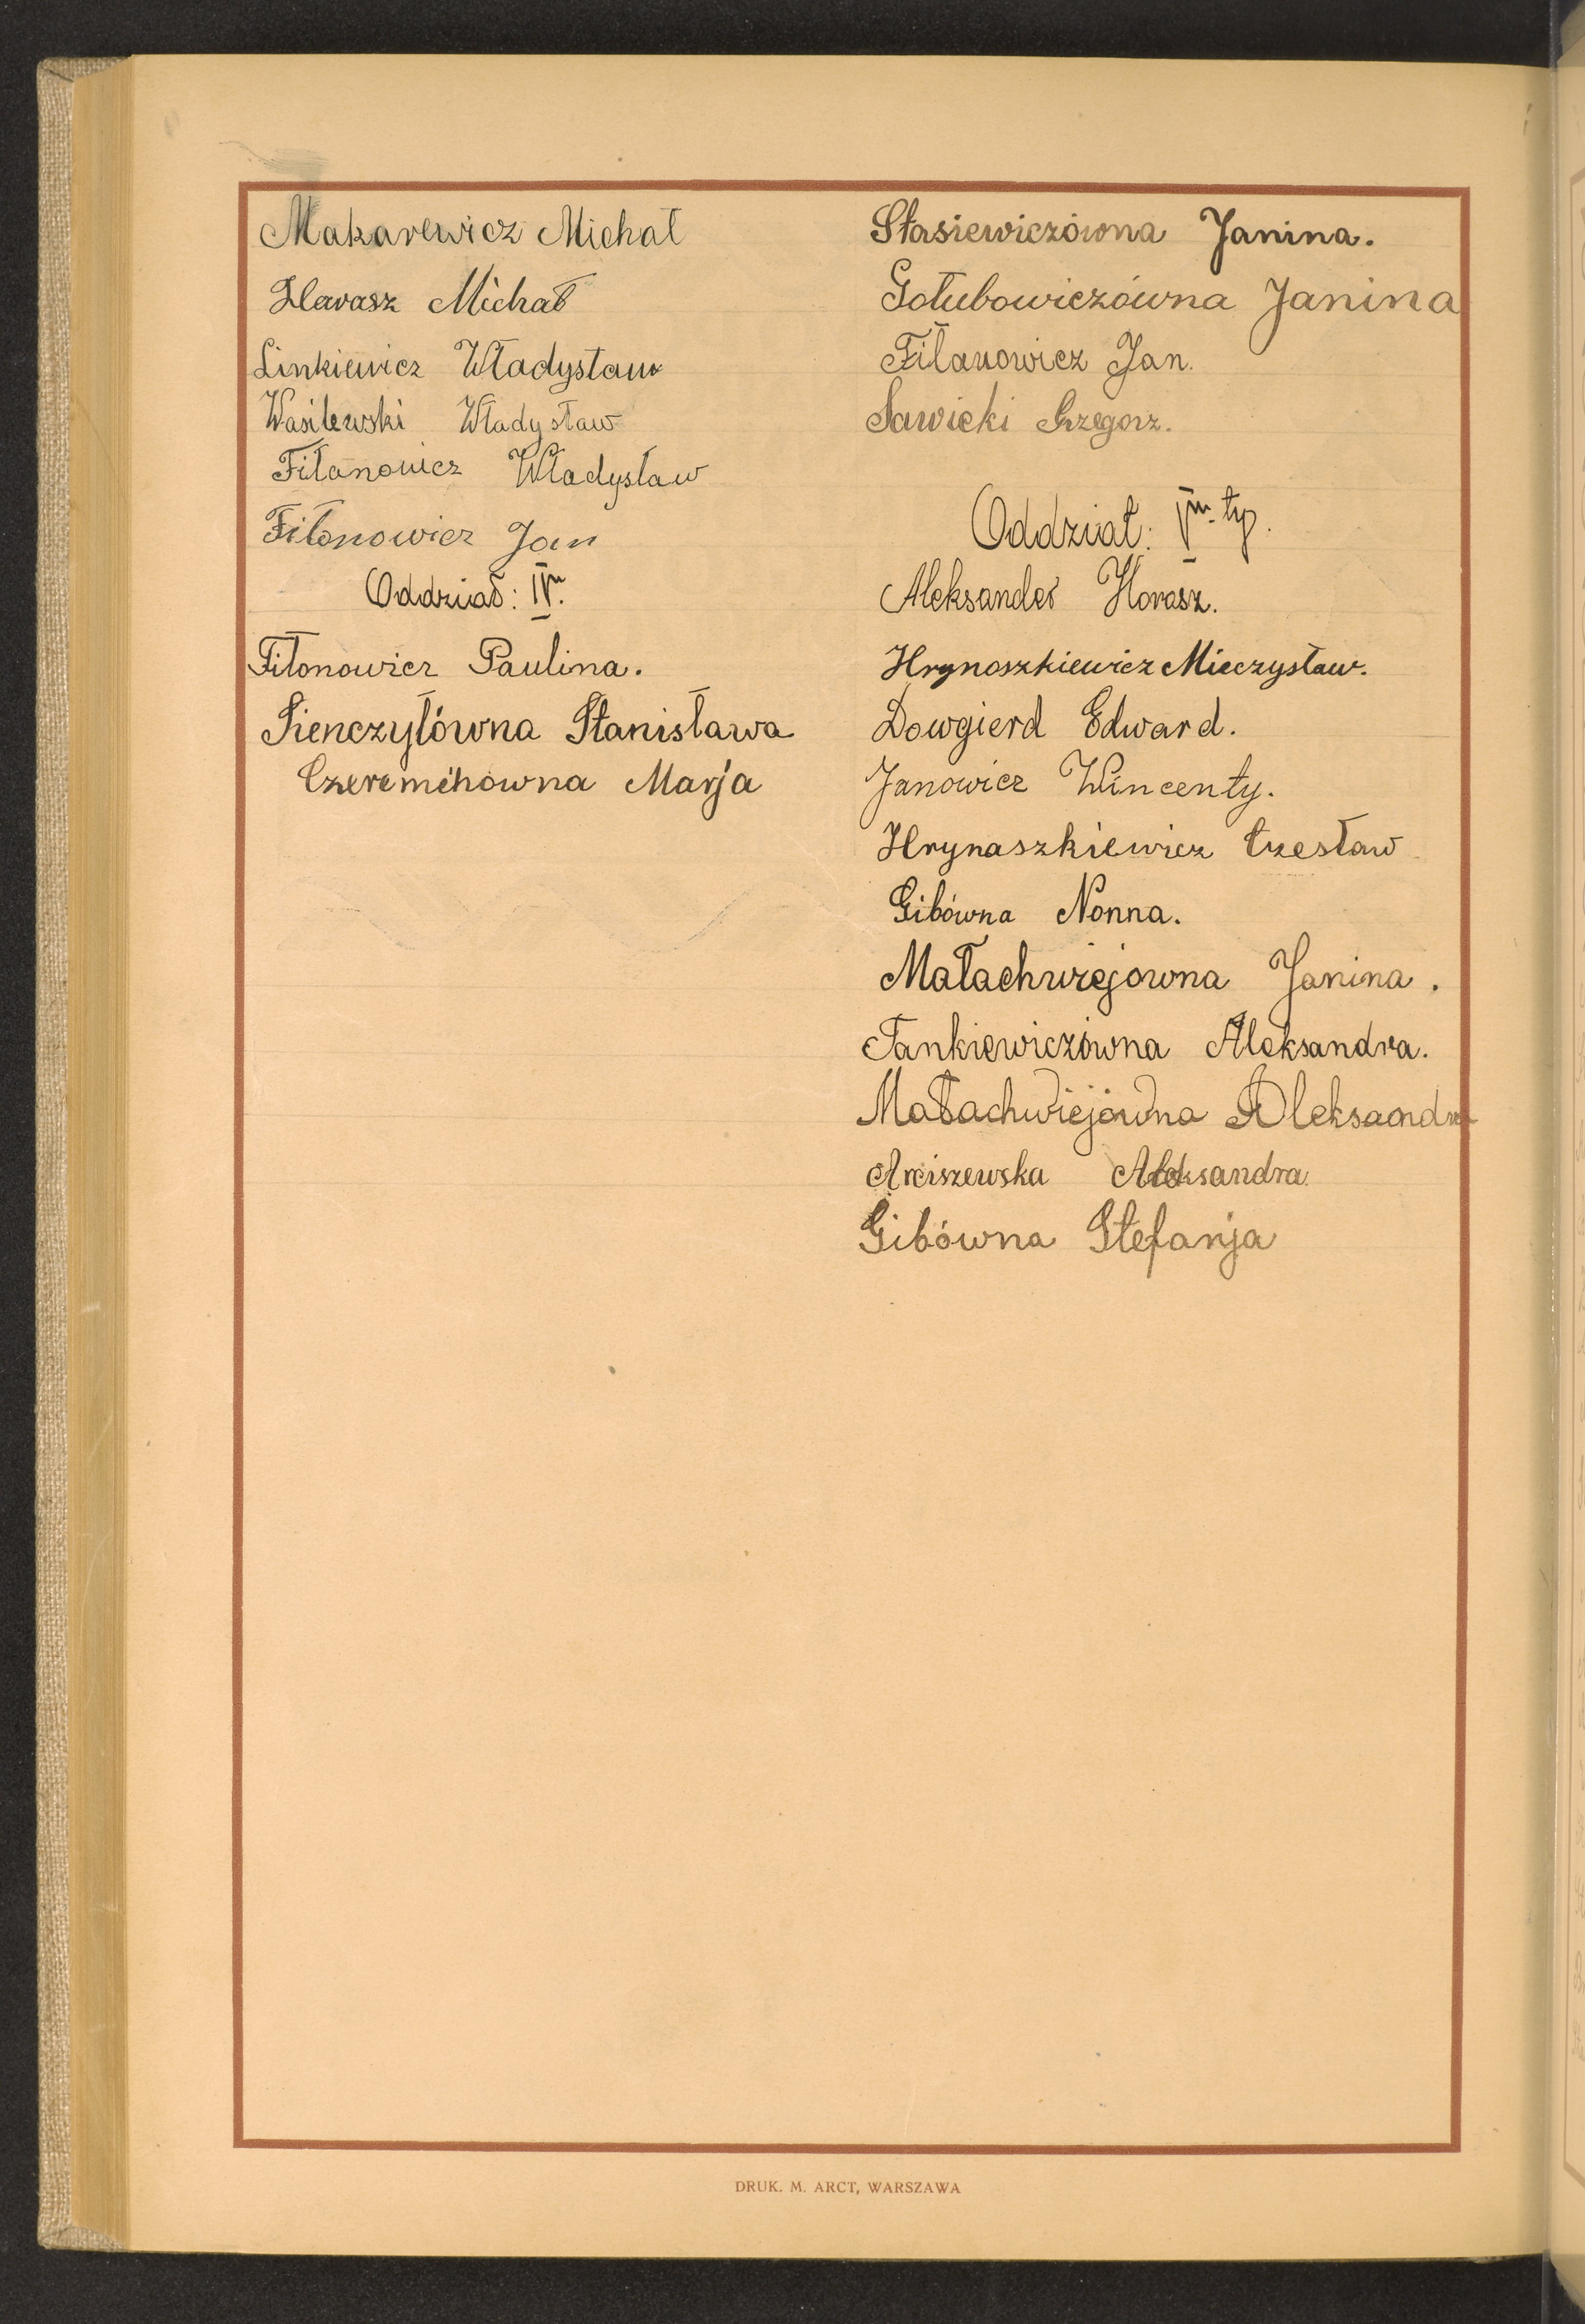 Makarewicz Michał
Harasz Michał
Linkiewicz Władysław
Wasilewski Władysław
Fiłanowicz Władysław
Fiłonowicz Jan
Oddział: IV.
Fiłonowicz Paulina.
Sienczyłówna Stanisława
Czeremchówna Marja
Stasiewiczówna Janina.
Gołubowiczówna Janina
Fiłanowicz Jan.
Sawicki Grzegorz.
Oddział: V-ty.
Aleksander Horasz.
Hrynoszkiewicz Mieczysław.
Dowgierd Edward.
Janowicz Wincenty.
Hrynaszkiewicz Czesław
Gibówna Nonna.
Małachwiejowna Janina.
Tankiewiczówna Aleksandra.
Małachwiejówna Aleksaandra
Arciszewska Aleksandra.
Gibówna Stefanja
DRUK. M. ARCT, WARSZAWA